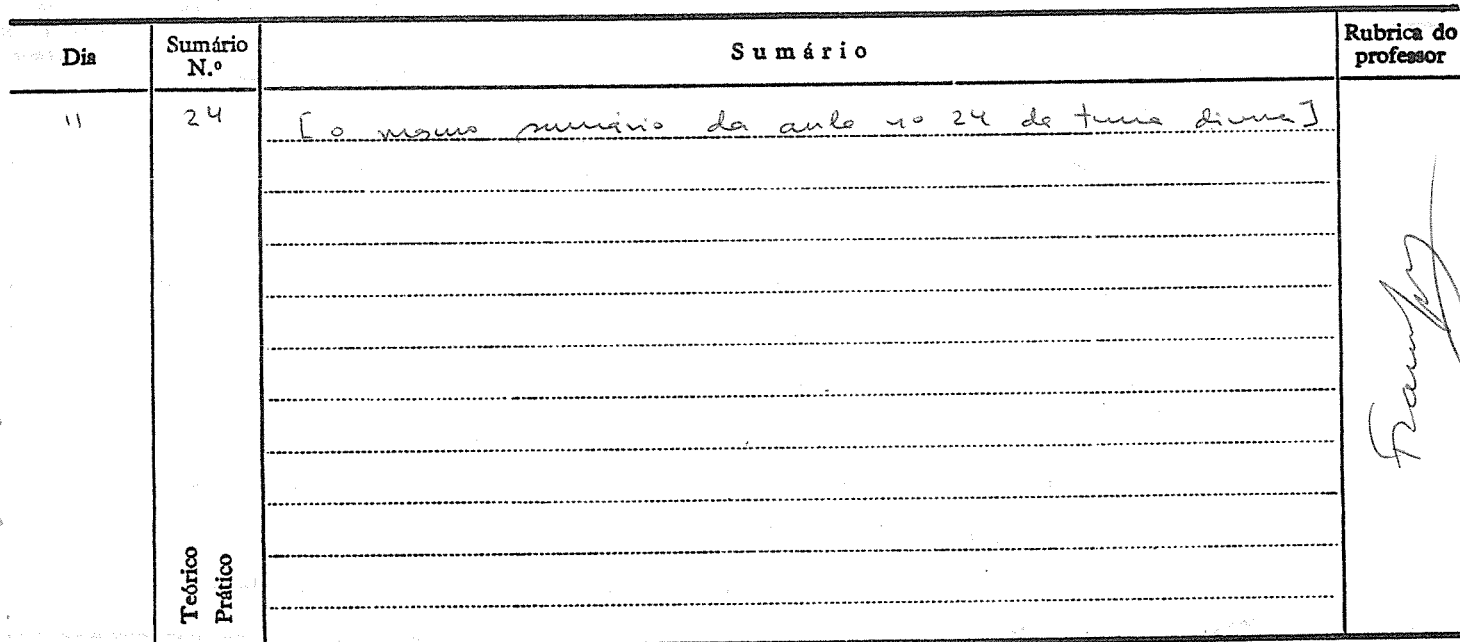 Dia
Sumário
N.º
Sumário
Rubrica do
professor
11
24
[o mesmo sumário da aula nº 24 da turma diurna]
Teórico
Prático